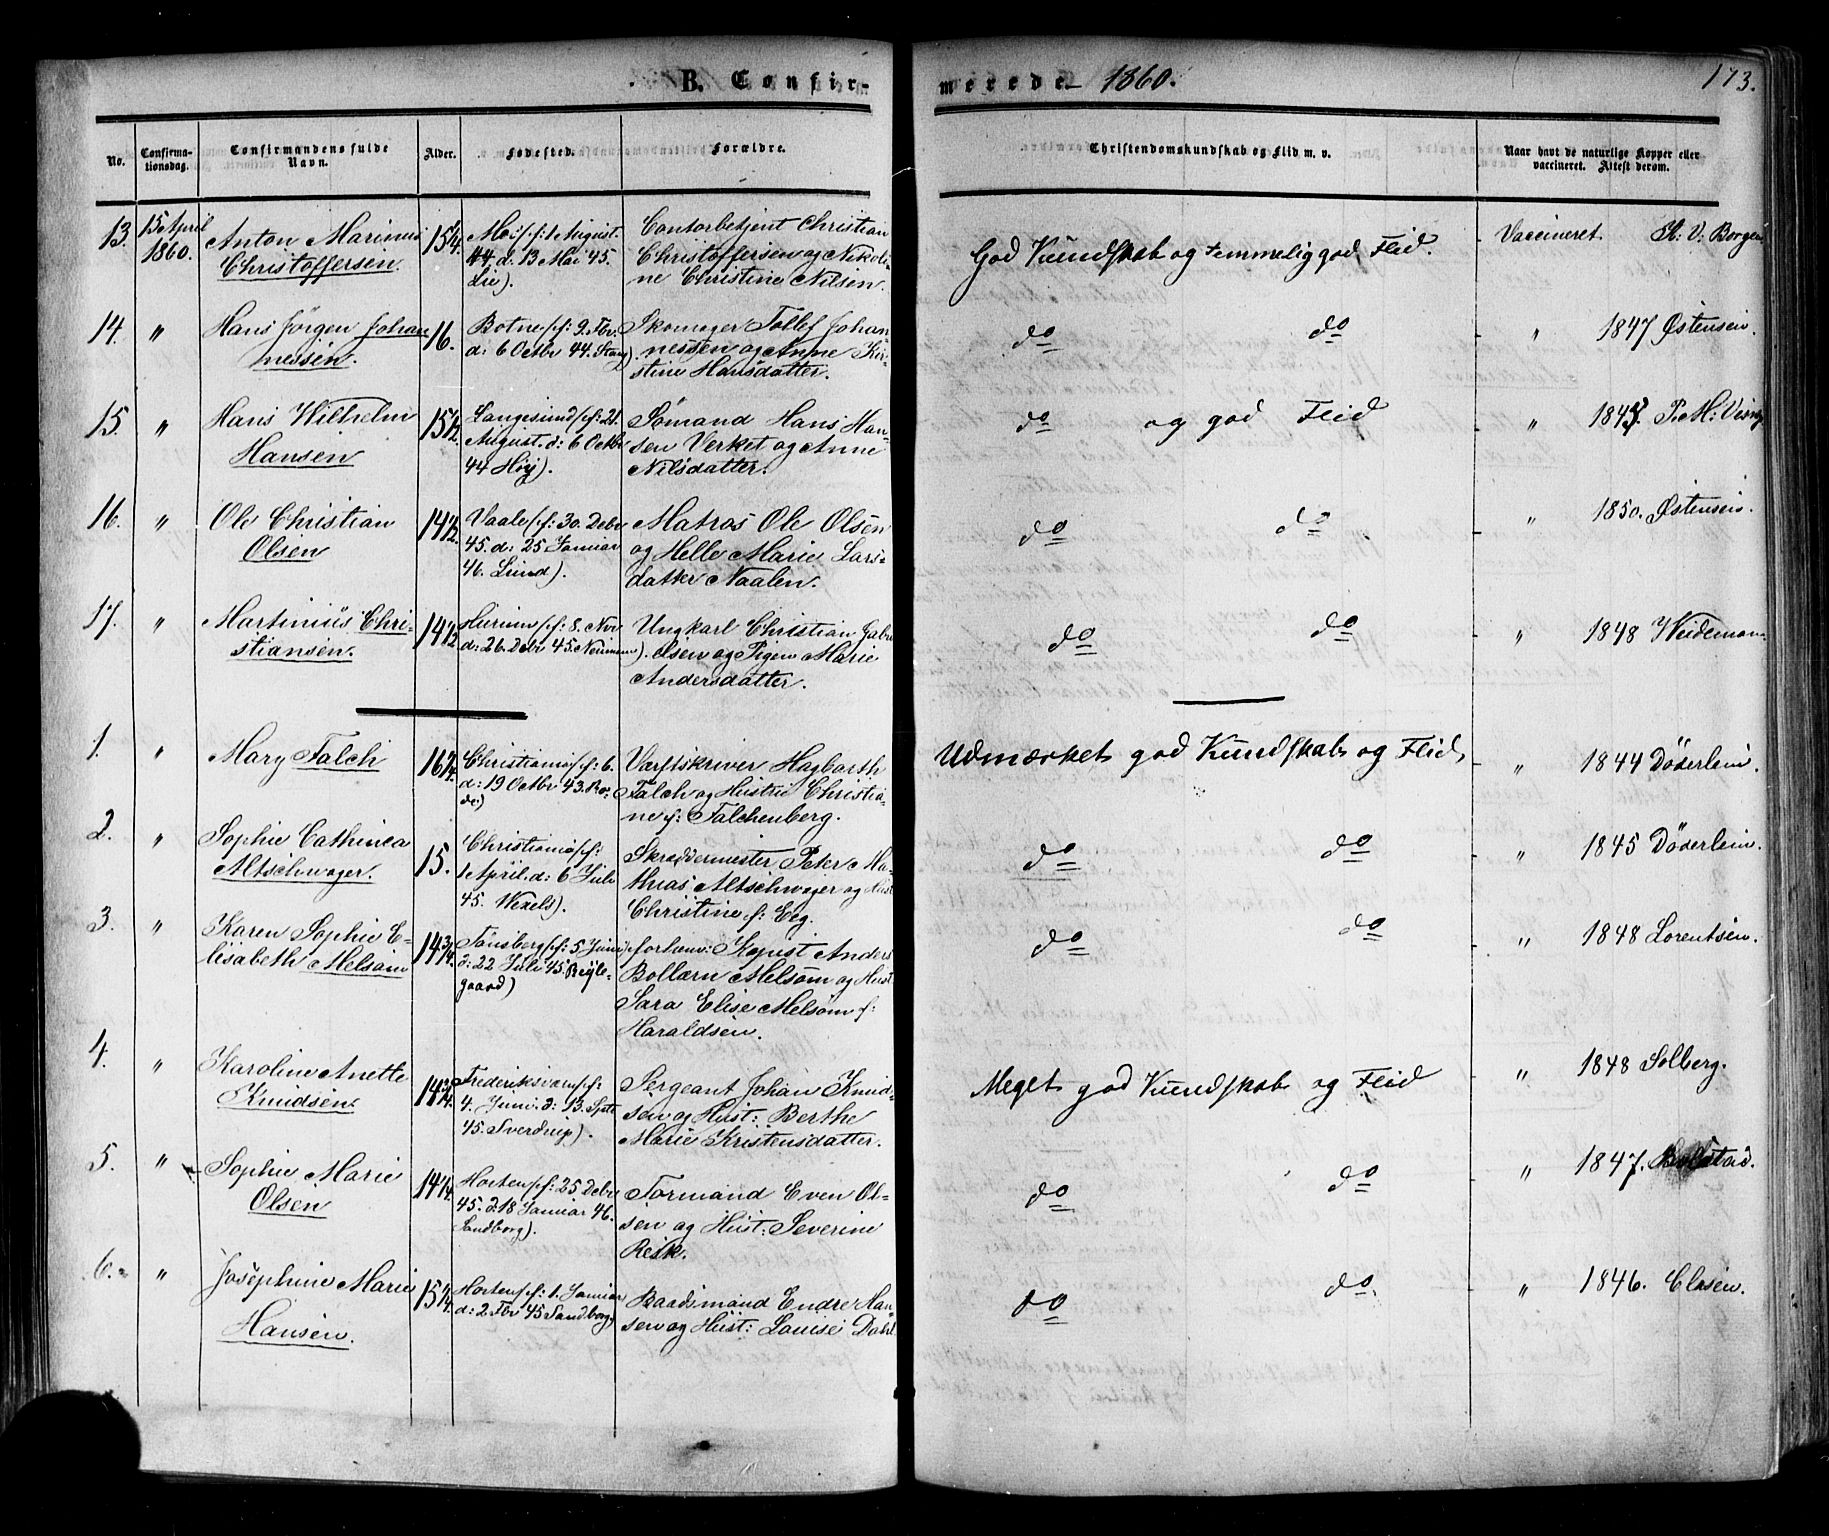 B. Confir-
merede 1860.
173.
No.
Confirma-
tionsdag.
Confirmandens fulde
Navn.
Alder.
Fødested.
Forældre.
Christendomskundskab og Flid m. v.
Naar havt de naturlige Kopper eller
vaccineret. Attest derom.
13.
15 April
1860.
Anton Marinus
Christoffersen.
15 1/4.
f: 1 August
44. d: 13 Mai 45.
Lie).
Contorbetjent Christian
Christoffersen og Nikoli-
ne Christine Nilsen.
God Kundskab og temmelig god Flid.
Vaccineret. Borgen
14.
"
Hans Jörgen Johan
nessen.
16.
Botne f: 9. Fbr:
d: 6 Octbr 44. Stang).
Skomager Tollef Johan
nessen og Anne Kir-
stine Hansdatter.
do do
" 1847 Østensen.
15.
"
Hans Wilhelm
Hansen
15 1/2.
Langesund f: 21.
August. d: 6 Octbr
44 Høy).
Sømand Hans Han-
sen Verket og Anne
Nilsdatter.
do og god Flid
" P. M:
16.
"
Ole Christian
Olsen
14 1/2.
Vaale f: 30. Debr
45. d: 25 Januar
46. Lund).
Matros Ole Olsen
og Helle Marie Lars-
datter Naalen.
do do
" 1850. Østensen.
17.
"
Martinius Chri-
stiansen.
14 1/2
Hurum f: 8. Nov
d: 26. Debr 45. Neumann).
Ungkarl Christian Gabri
elsen og Pigen Marie
Andersdatter.
do do
" 1848 Weidemann.
1.
"
Mary Falch
16 1/4.
Christiania f: 6.
d: 19 Octbr 43.
Værftskriver Hagbarth
Falch og Hustru Christia-
ne f: Falchenberg.
Udmærket god Kundskab og Flid,
" 1844 Døderlein.
2.
"
Sophie Cathinca
Altschwager.
15.
Christiania f:
1 April. d: 6 Juli
45. Wexels).
Skreddermester Peter Ma-
thias Altschwager og Hust
Christine f: Eeg.
do do
" 1845 Døderlein.
3.
"
Karen Sophie E-
lisabeth Melsom
14 3/4.
Tönsberg f: 5 Juni
d: 22 Juli 45 Bugle-
gaard)
forhenv: Kopist Anders
Bollærn Melsom og Hust
Sara Elise Melsom f:
Haraldsen.
do do
" 1848 Lorentsen.
4.
"
Karoline Anette
Knudsen.
14 3/4.
Frederiksværn f:
4. Juni. d: 13. Sptr
45. Sverdrup).
Sergeant Johan Knud-
sen og Hust: Berthe
Marie Kristensdatter.
Meget god Kundskab og Flid
" 1848 Solberg.
5.
"
Sophie Marie
Olsen
14 1/4.
Horten f: 25 Debr
45. d: 18 Januar 46.
Sandborg).
Tormand Even Ol-
sen og Hust: Severine
Resk.
do do
" 1847.
6.
"
Josephine Marie
Hansen.
15 1/4.
Horten f: 1. Januar
d: 2. Fbr 45 Sandborg)
Baadsmand Endre Han-
sen og Hust: Louise Dahl
do do.
" 1846. Clasen.